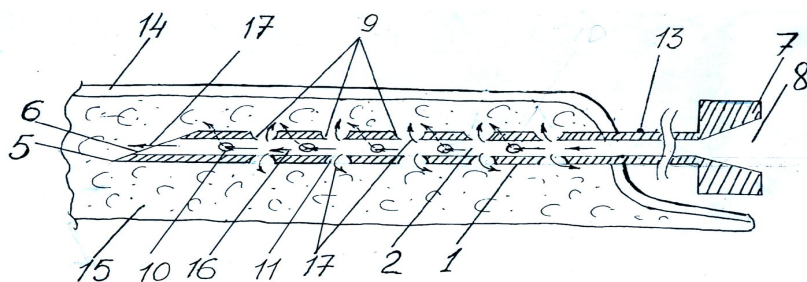 14 17 9 13 7
8
6
5
15 10 16 11 17 2 1